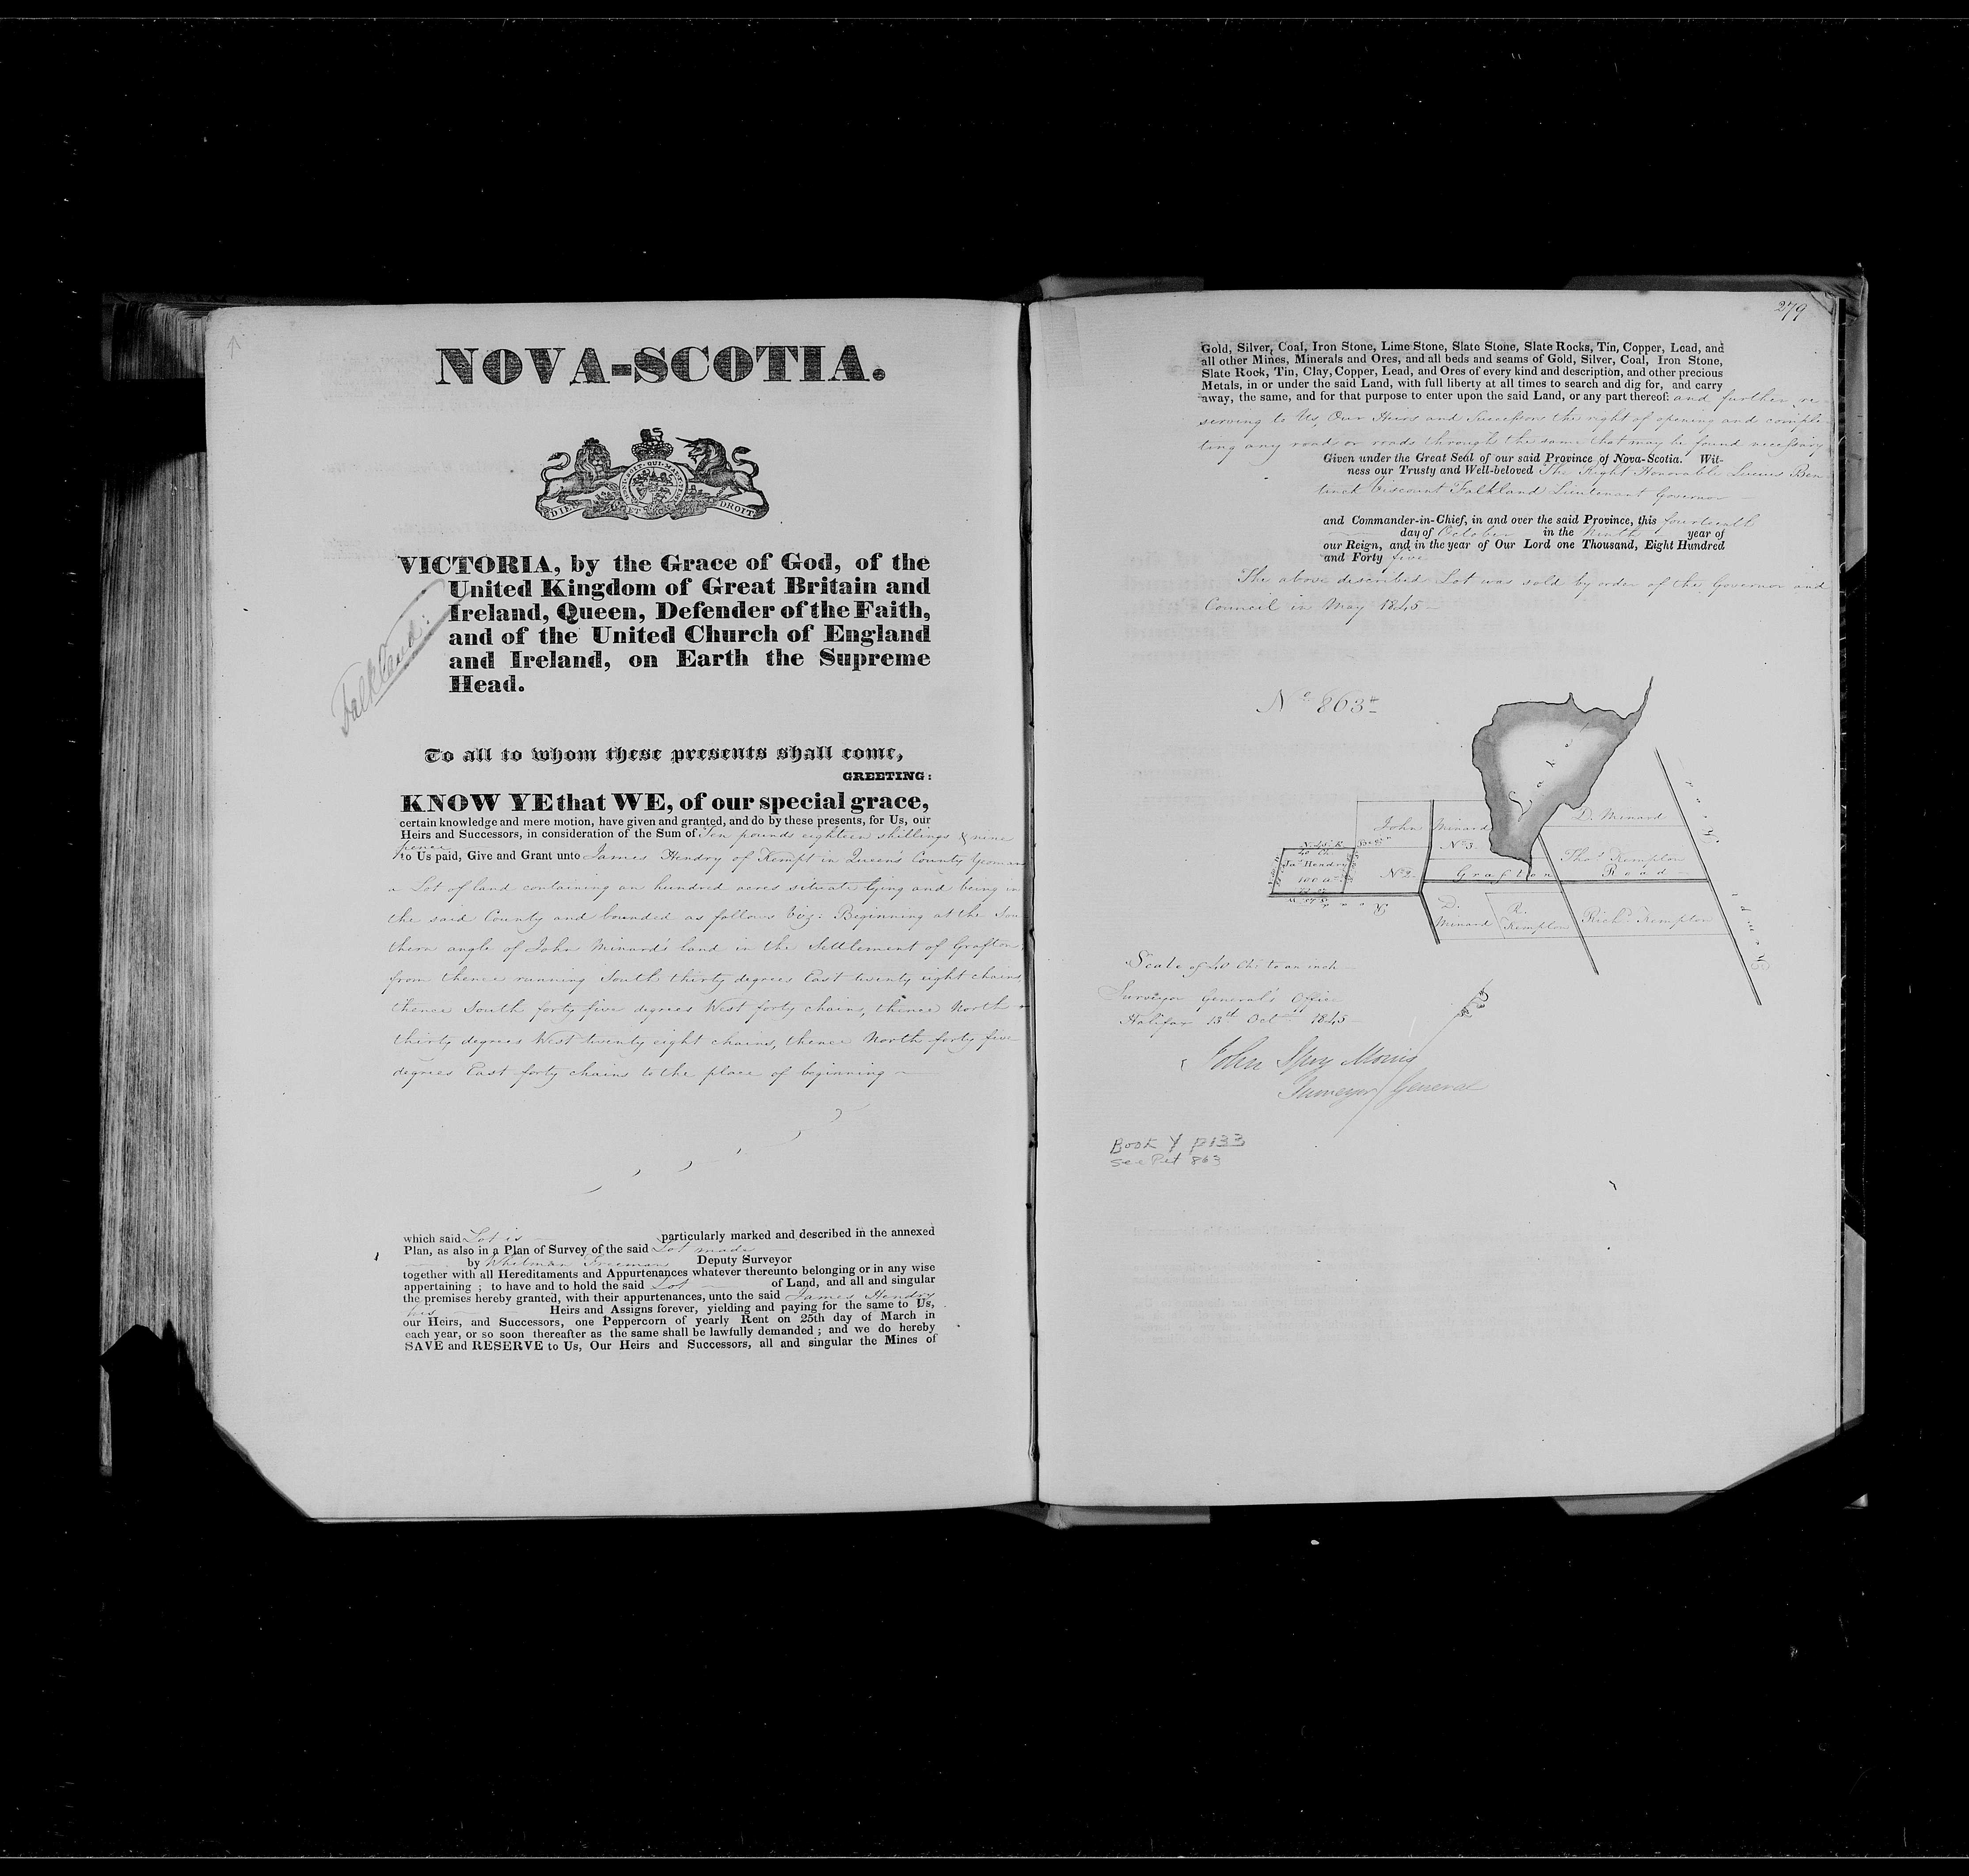 NOVA-SCOTIA.
DIEU ET MON DROIT
Falkland:
VICTORIA, by the Grace of God, of the
United Kingdom of Great Britain and
Ireland, Queen, Defender of the Faith,
and of the United Church of England
and Ireland, on Earth the Supreme
Head.
To all to whom these presents shall come,
GREETING:
KNOW YE that WE, of our special grace,
certain knowledge and mere motion, have given and granted, and do by these presents, for Us, our
Heirs and Successors, in consideration of the Sum of Ten pounds eighteen shillings & nine
pence
to Us paid, Give and Grant unto James Hendry of Kempt in Queen's County Yeoman
a Lot of land containing an hundred acres situate lying and being in
the said County and bounded as follows Viz: Beginning at the Sou
thern angle of John Minard's land in the Settlement of Grafton,
from thence running South thirty degrees East twenty eight chains,
thence South forty five degrees West forty chains, thence North
thirty degrees West twenty eight chains, thence North forty five
degrees East forty chains to the place of beginning
which said Lot is particularly marked and described in the annexed
Plan, as also in a Plan of Survey of the said Lot made
by Whitman Freeman Deputy Surveyor
together with all Hereditaments and Appurtenances whatever thereunto belonging or in any wise
appertaining ; to have and to hold the said Lot of Land, and all and singular
the premises hereby granted, with their appurtenances, unto the said James Hendry
his Heirs and Assigns forever, yielding and paying for the same to Us,
our Heirs, and Successors, one Peppercorn of yearly Rent on 25th day of March in
each year, or so soon thereafter as the same shall be lawfully demanded ; and we do hereby
SAVE and RESERVE to Us, Our Heirs and Successors, all and singular the Mines of
279
Gold, Silver, Coal, Iron Stone, Lime Stone, Slate Stone, Slate Rocks, Tin, Copper, Lead, and
all other Mines, Minerals and Ores, and all beds and seams of Gold, Silver, Coal, Iron Stone,
Slate Rock, Tin, Clay, Copper, Lead, and Ores of every kind and description, and other precious
Metals, in or under the said Land, with full liberty at all times to search and dig for, and carry
away, the same, and for that purpose to enter upon the said Land, or any part thereof: and further re-
serving to Us, Our Heirs and Successors the right of opening and comple-
ting any road or roads through the same that may be found necessary
Given under the Great Seal of our said Province of Nova-Scotia. Wit-
ness our Trusty and Well-beloved The Right Honorable Lucius Ben-
tinck Viscount Falkland Lieutenant Governor
and Commander-in-Chief, in and over the said Province, this fourteenth
day of October in the Ninth year of
our Reign, and in the year of Our Lord one Thousand, Eight Hundred
and Forty five
The above described Lot was sold by order of the Governor and
Council in May 1845
No. 863
Lake
John Minard
No. 3.
D. Minard
N. 45° E.
40 Ch
Jas. Hendry
100 a
No. 2
Thos. Kempton
Grafton Road
Road
D. Minard
R. Kempton
Richd. Kempton
Scale of 40 Chs. to an inch
Surveyor General's Office
Halifax 13th Oct 1845
John Spry Morris
Surveyor General
Book Y P133
see Pet 863